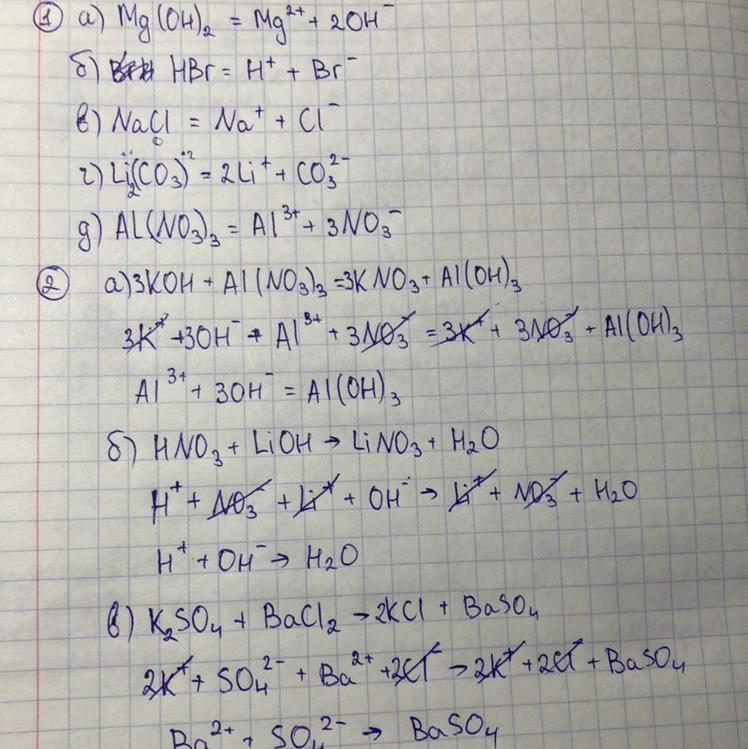 ① а) Mg(OH)₂ = Mg²⁺ + 2OH⁻
б) HBr = H⁺ + Br⁻
в) NaCl = Na⁺ + Cl⁻
г) Li₂(CO₃) = 2Li⁺ + CO₃²⁻
д) Al(NO₃)₃ = Al³⁺ + 3NO₃⁻
② а) 3KOH + Al(NO₃)₃ = 3KNO₃ + Al(OH)₃
3K⁺ + 3OH⁻ + Al³⁺ + 3NO₃⁻ = 3K⁺ + 3NO₃⁻ + Al(OH)₃
Al³⁺ + 3OH⁻ = Al(OH)₃
б) HNO₃ + LiOH → LiNO₃ + H₂O
H⁺ + NO₃⁻ + Li⁺ + OH⁻ → Li⁺ + NO₃⁻ + H₂O
H⁺ + OH⁻ → H₂O
в) K₂SO₄ + BaCl₂ → 2KCl + BaSO₄
2K⁺ + SO₄²⁻ + Ba²⁺ + 2Cl⁻ → 2K⁺ + 2Cl⁻ + BaSO₄
Ba²⁺ + SO₄²⁻ → BaSO₄